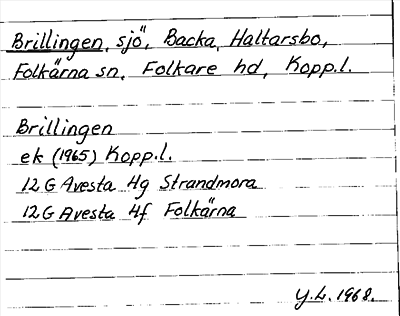 Brillingen, sjö, Backa, Haltarsbo,
Folkärna sn, Folkare hd, Kopp.l.
Brillingen
ek (1965) Kopp.l.
12 G Avesta 4g Strandmora
12 G Avesta 4f Folkärna
Y.L. 1968.